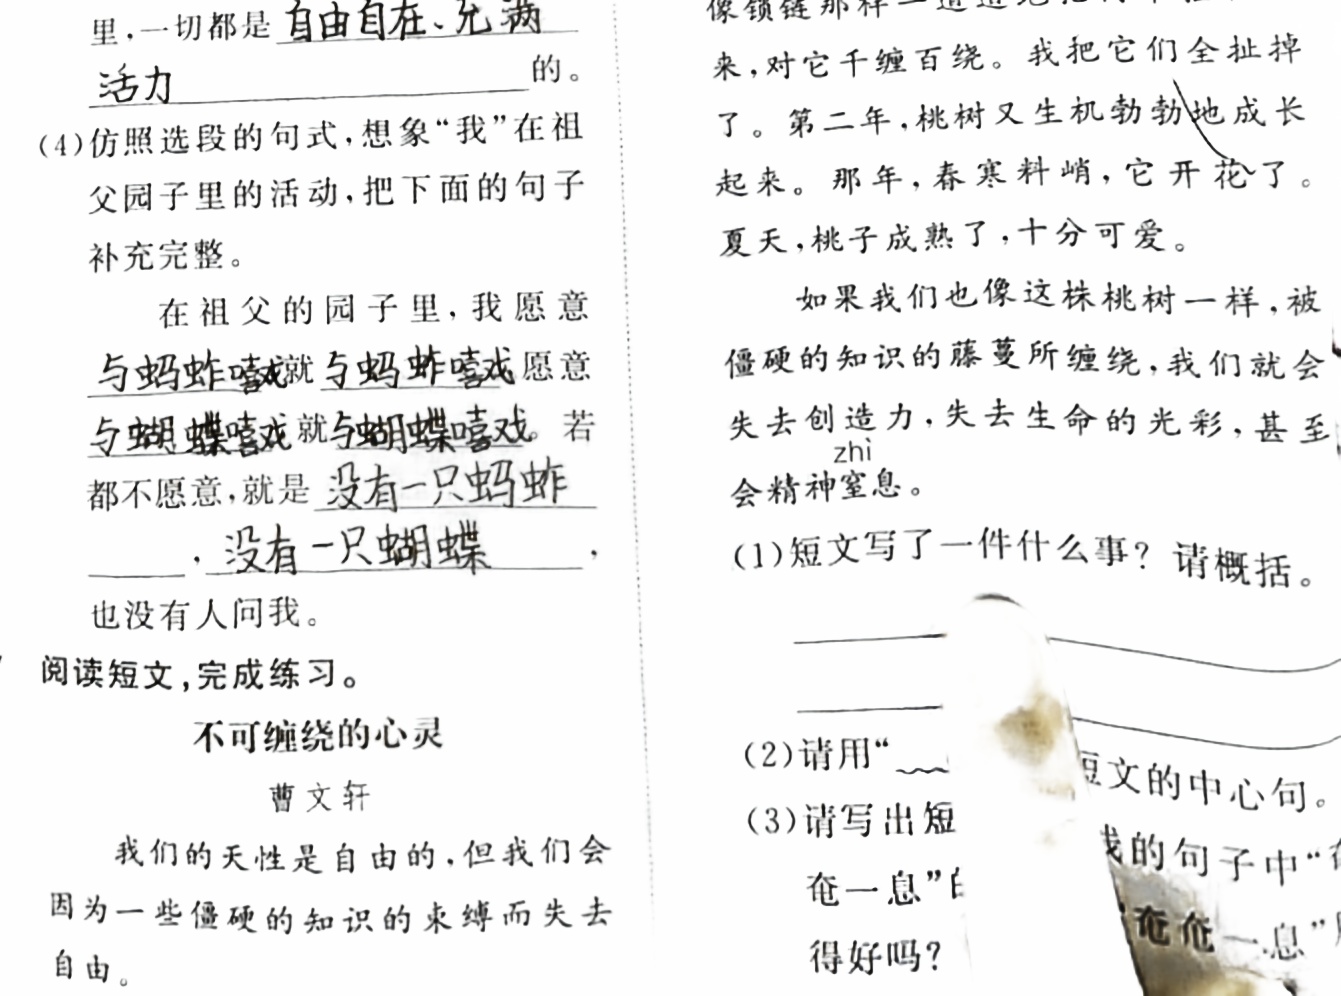 里,一切都是自由自在、充满
活力的。
(4)仿照选段的句式,想象“我”在祖
父园子里的活动,把下面的句子
补充完整。
在祖父的园子里,我愿意
与蚂蚱嘻戏就与蚂蚱嘻戏愿意
与蝴蝶嘻戏就与蝴蝶嘻戏。若
都不愿意,就是没有一只蚂蚱
,没有一只蝴蝶,
也没有人问我。
阅读短文,完成练习。
不可缠绕的心灵
曹文轩
我们的天性是自由的,但我们会
因为一些僵硬的知识的束缚而失去
自由。
像锁链那样一道道地
来,对它千缠百绕。我把它们全扯掉
了。第二年,桃树又生机勃勃地成长
起来。那年,春寒料峭,它开花了。
夏天,桃子成熟了,十分可爱。
如果我们也像这株桃树一样,被
僵硬的知识的藤蔓所缠绕,我们就会
失去创造力,失去生命的光彩,甚至
zhì
会精神窒息。
(1)短文写了一件什么事?请概括。
(2)请用“ 短文的中心句。
(3)请写出短 的句子中“奄
奄一息” 奄奄一息”
得好吗?